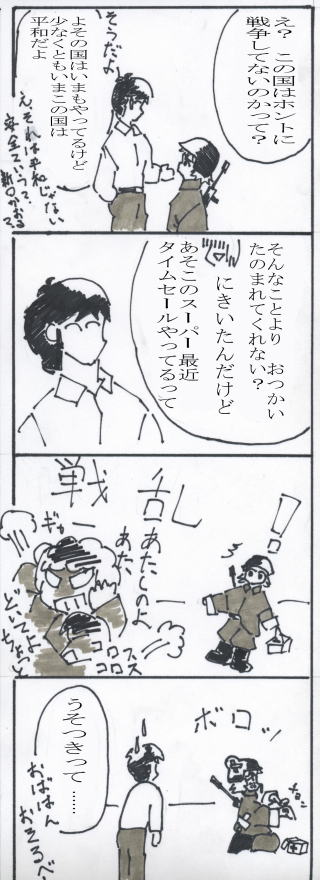 え? この国はホントに
戦争してないのかって?
そうだよ
よその国はいまもやってるけど
少なくともいまこの国は
平和だよ
え、それは平和じゃない
そんなことより おつかい
たのまれてくれない?
にきいたんだけど
あそこのスーパー最近
タイムセールやってるって
!
戦乱
ギャー
あたしのよ
あた、
どいてよ
ちょっと
コロス
コロス
ボロッ
うそつきって……
おばはん
おそるべし